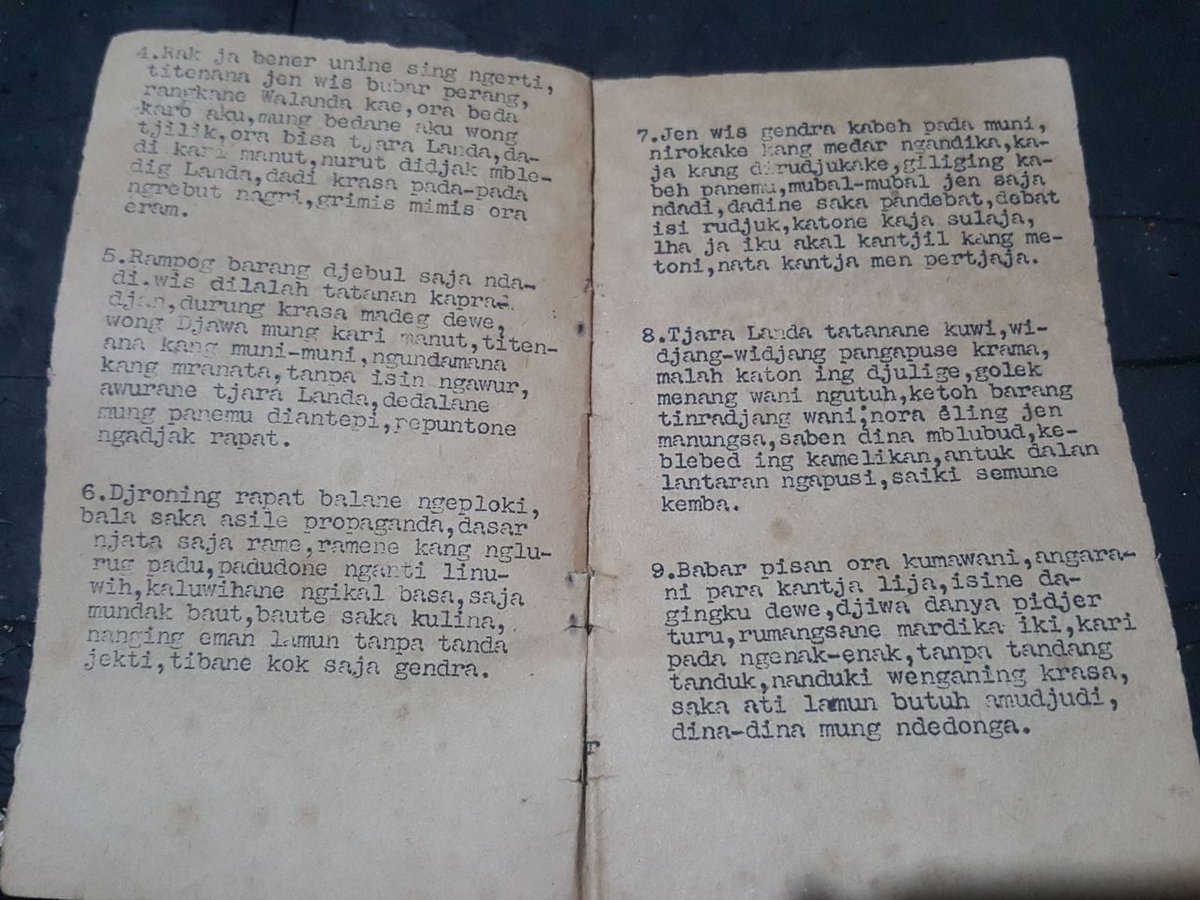 4.Rak ja bener unine sing ngerti,
titenana jen wis bubar perang,
rangkane Walanda kae,ora beda
karo aku,mung bedane aku wong
tjilik,ora bisa tjara Landa,da-
di kari manut,nurut didjak mble-
dig Landa,dadi krasa pada-pada
ngrebut nagri,grimis mimis ora
eram.
5.Rampog barang djebul saja nda-
di.wis dilalah tatanan kapra-
djan,durung krasa madeg dewe,
wong Djawa mung kari manut,titen-
ana kang muni-muni,ngundamana
kang mranata,tanpa isin ngawur,
awurane tjara Landa,dedalane
mung panemu diantepi,repuntone
ngadjak rapat.
6.Djroning rapat balane ngeploki,
bala saka asile propaganda,dasar
njata saja rame,ramene kang nglu-
rug padu,padudone nganti linu-
wih,kaluwihane ngikal basa,saja
mundak baut,baute saka kulina,
nanging eman lamun tanpa tanda
jekti,tibane kok saja gendra.
7.Jen wis gendra kabeh pada muni,
nirokake kang medar ngandika,ka-
ja kang dirudjukake,giliging ka-
beh panemu,mubal-mubal jen saja
ndadi,dadine saka pandebat,debat
isi rudjuk,katone kaja sulaja,
lha ja iku akal kantjil kang me-
toni,nata kantja men pertjaja.
8.Tjara Landa tatanane kuwi,wi-
djang-widjang pangapuse krama,
malah katon ing djulige,golek
menang wani ngutuh,ketoh barang
tinradjang wani,nora eling jen
manungsa,saben dina mblubud,ke-
blebed ing kamelikan,antuk dalan
lantaran ngapusi,saiki semune
kemba.
9.Babar pisan ora kumawani,angara-
ni para kantja lija,isine da-
gingku dewe,djiwa danya pidjer
turu,rumangsane mardika iki,kari
pada ngenak-enak,tanpa tandang
tanduk,nanduki wenganing krasa,
saka ati lamun butuh amudjudi,
dina-dina mung ndedonga.